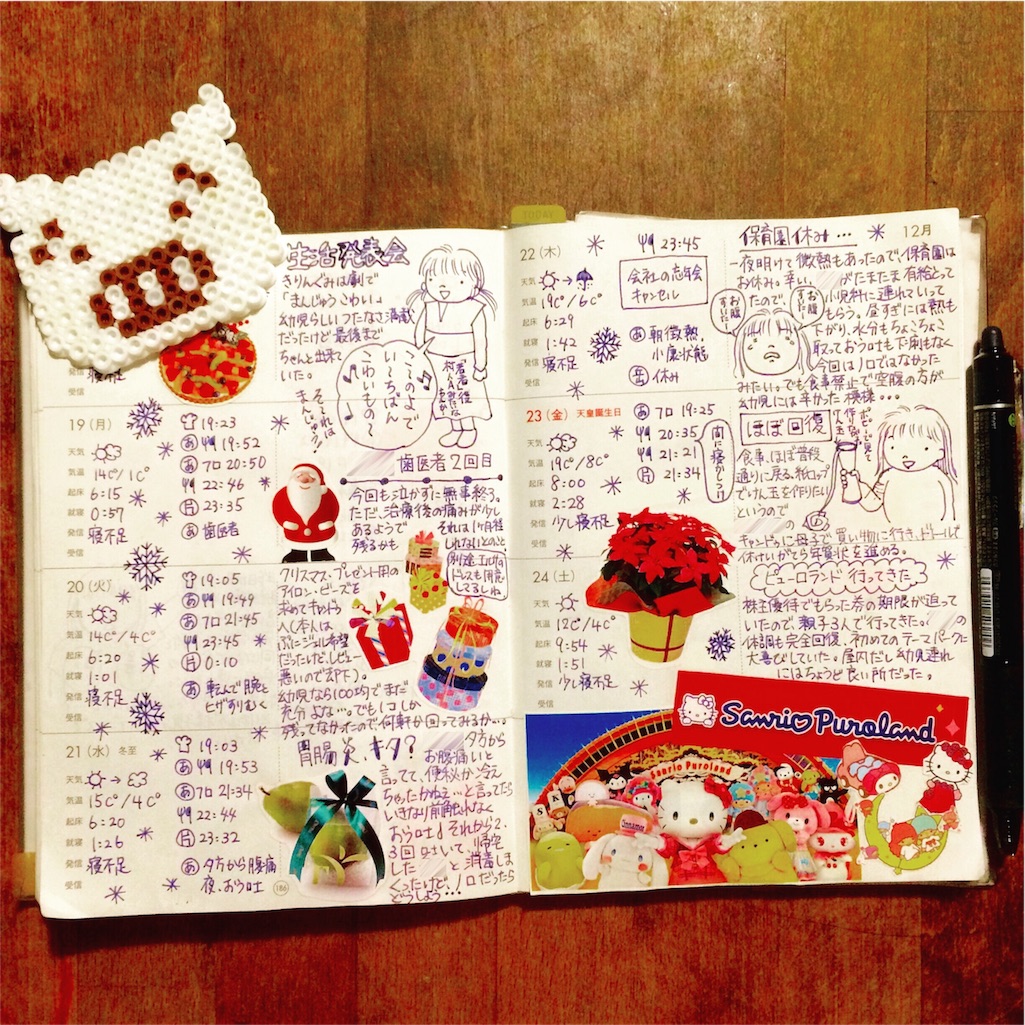 TODAY
生活発表会
きりんぐみは劇で
「まんじゅうこわい」
幼児らしいつたなさ満載
だったけど最後まで
ちゃんと出来て
いた。
このよで
い〜ちばん
こわいもの〜
それは
まんじゅう!
寝不足
受信
19(月)
天気
気温 14℃/1℃
起床 6:15
就寝 0:57
発信 寝不足
受信
19:23
あ 19:52
あ フロ 20:50
22:46
片 23:35
あ 歯医者
歯医者2回目
今回も泣かずに無事終了。
ただ、治療後の痛みが少し
あるようで
それは1ヶ月後
残るかも
しれないとのこと
20(火)
天気
気温 14℃/4℃
起床 6:20
就寝 1:01
発信 寝不足
受信
19:05
あ 19:49
あ フロ 21:45
23:45
片 0:10
あ 転んで腕と
ヒザすりむく
クリスマス・プレゼント用の
アイロン・ビーズを
求めてキャンドゥ
へ(本人は
ぷにジェル希望
だったけど、レビュー
悪いので却下)。
幼児なら100均でまだ
充分よな…。でも1コしか
残ってなかったので何軒か回ってみるか…。
21(水) 冬至
天気
気温 15℃/4℃
起床 6:20
就寝 1:26
発信 寝不足
受信
19:03
あ 19:53
あ フロ 21:34
22:44
片 23:32
あ 夕方から腹痛
夜、おう吐
186
胃腸炎、キタ?
夕方から
お腹痛いと
言ってて、便秘か冷え
ちゃったかねえ…と言ってたら
いきなり前触れなく
おう吐。それから2、
3回吐いて、帰宅
した と消毒しま
くったけど、ノロだったら
どうしよう…!
22(木)
12月
23:45
天気
気温 19℃/6℃
起床 6:29
就寝 1:42
発信 寝不足
受信
会社の忘年会
キャンセル
あ 朝微熱、
小康状態
岳 休み
保育園休み…
一夜明けて微熱もあったので、保育園は
お休み。幸い、 がたまたま有給とって
たので、
小児科に連れていって
もらう。昼すぎには熱も
下がり、水分もちょこちょこ
取っておう吐も下痢もなく
今回はノロではなかった
みたい。でも食事禁止で空腹の方が
幼児には辛かった模様…
お腹
すいた
お腹
すいた
23(金) 天皇誕生日
天気
気温 19℃/8℃
起床 8:00
就寝 2:28
発信 少し寝不足
受信
あ フロ 19:25
あ 20:35
片 21:34
間に寝かしつけ
ほぼ回復
食事、ほぼ普段
通りに戻る。紙コップ
でけん玉を作りたい
というので
キャンドゥに母子で買い物に行き、ドトールで
休けいがてら年賀状を進める。
24(土)
天気
気温 12℃/4℃
起床 9:54
就寝 1:51
発信 少し寝不足
受信
ピューロランド行ってきた
株主優待でもらった券の期限が迫って
いたので、親子3人で行ってきた。 の
体調も完全回復、初めてのテーマパークに
大喜びしていた。屋内だし幼児連れ
にはちょうど良い所だった。
Sanrio Puroland
Sanrio Puroland
Cinnamon